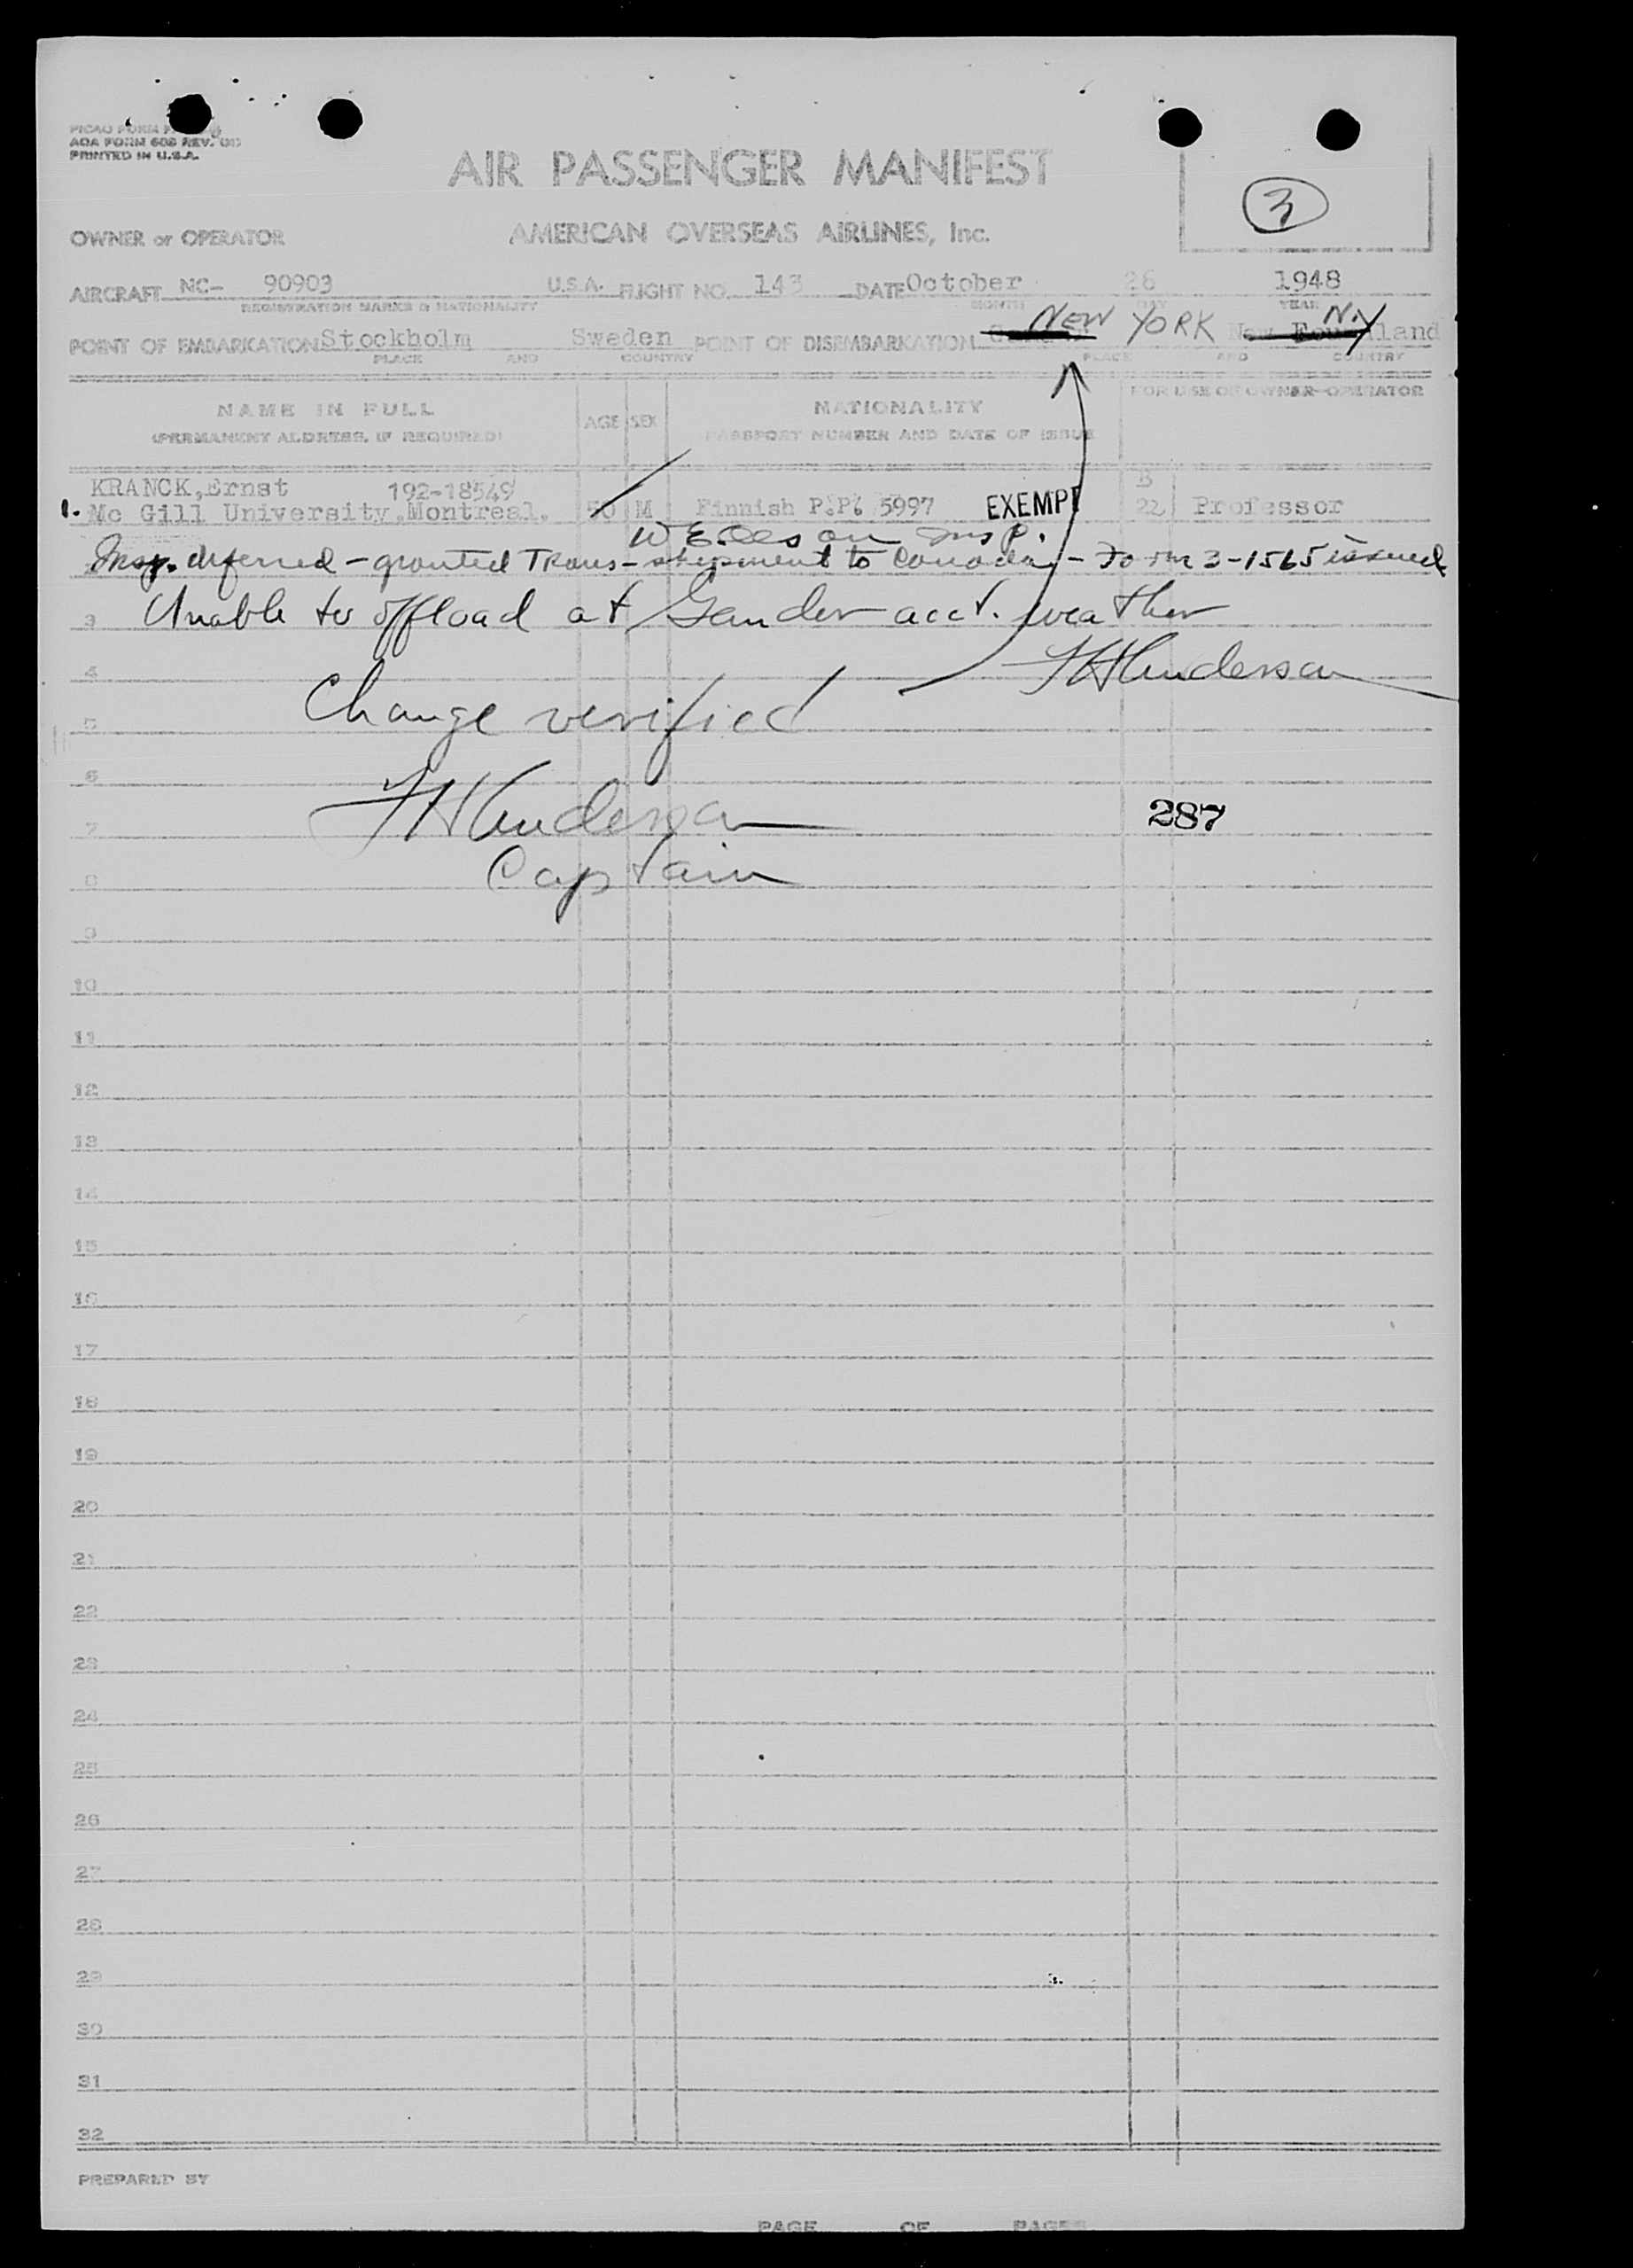 AOA FORM 608 REV.
PRINTED IN U.S.A.
AIR PASSENGER MANIFEST
3
OWNER or OPERATOR AMERICAN OVERSEAS AIRLINES, Inc.
AIRCRAFT NC- 90903 U.S.A. FLIGHT NO. 143 DATE October 26 1948
REGISTRATION MARKS & NATIONALITY MONTH DAY YEAR
NEW YORK N.Y
POINT OF EMBARKATION Stockholm Sweden POINT OF DISEMBARKATION
PLACE AND COUNTRY PLACE AND COUNTRY
NAME IN FULL AGE SEX NATIONALITY FOR USE OF OWNER OR OPERATOR
(PERMANENT ADDRESS, IF REQUIRED) PASSPORT NUMBER AND DATE OF ISSUE
KRANCK, Ernst 192-18549 B
1. Mc Gill University, Montreal. 50 M Finnish P.P. 5997 EXEMPT 22 Professor
W E. Oleson Insp.
Insp. deferred - granted Trans-shipment to Canada - Form 3-1565 issued
3 Unable to offload at Gander acct. weather
4 Henderson
5 Change verified
6
7 Henderson 287
8 Captain
9
10
11
12
13
14
15
16
17
18
19
20
21
22
23
24
25
26
27
28
29
30
31
32
PREPARED BY
PAGE OF PAGES